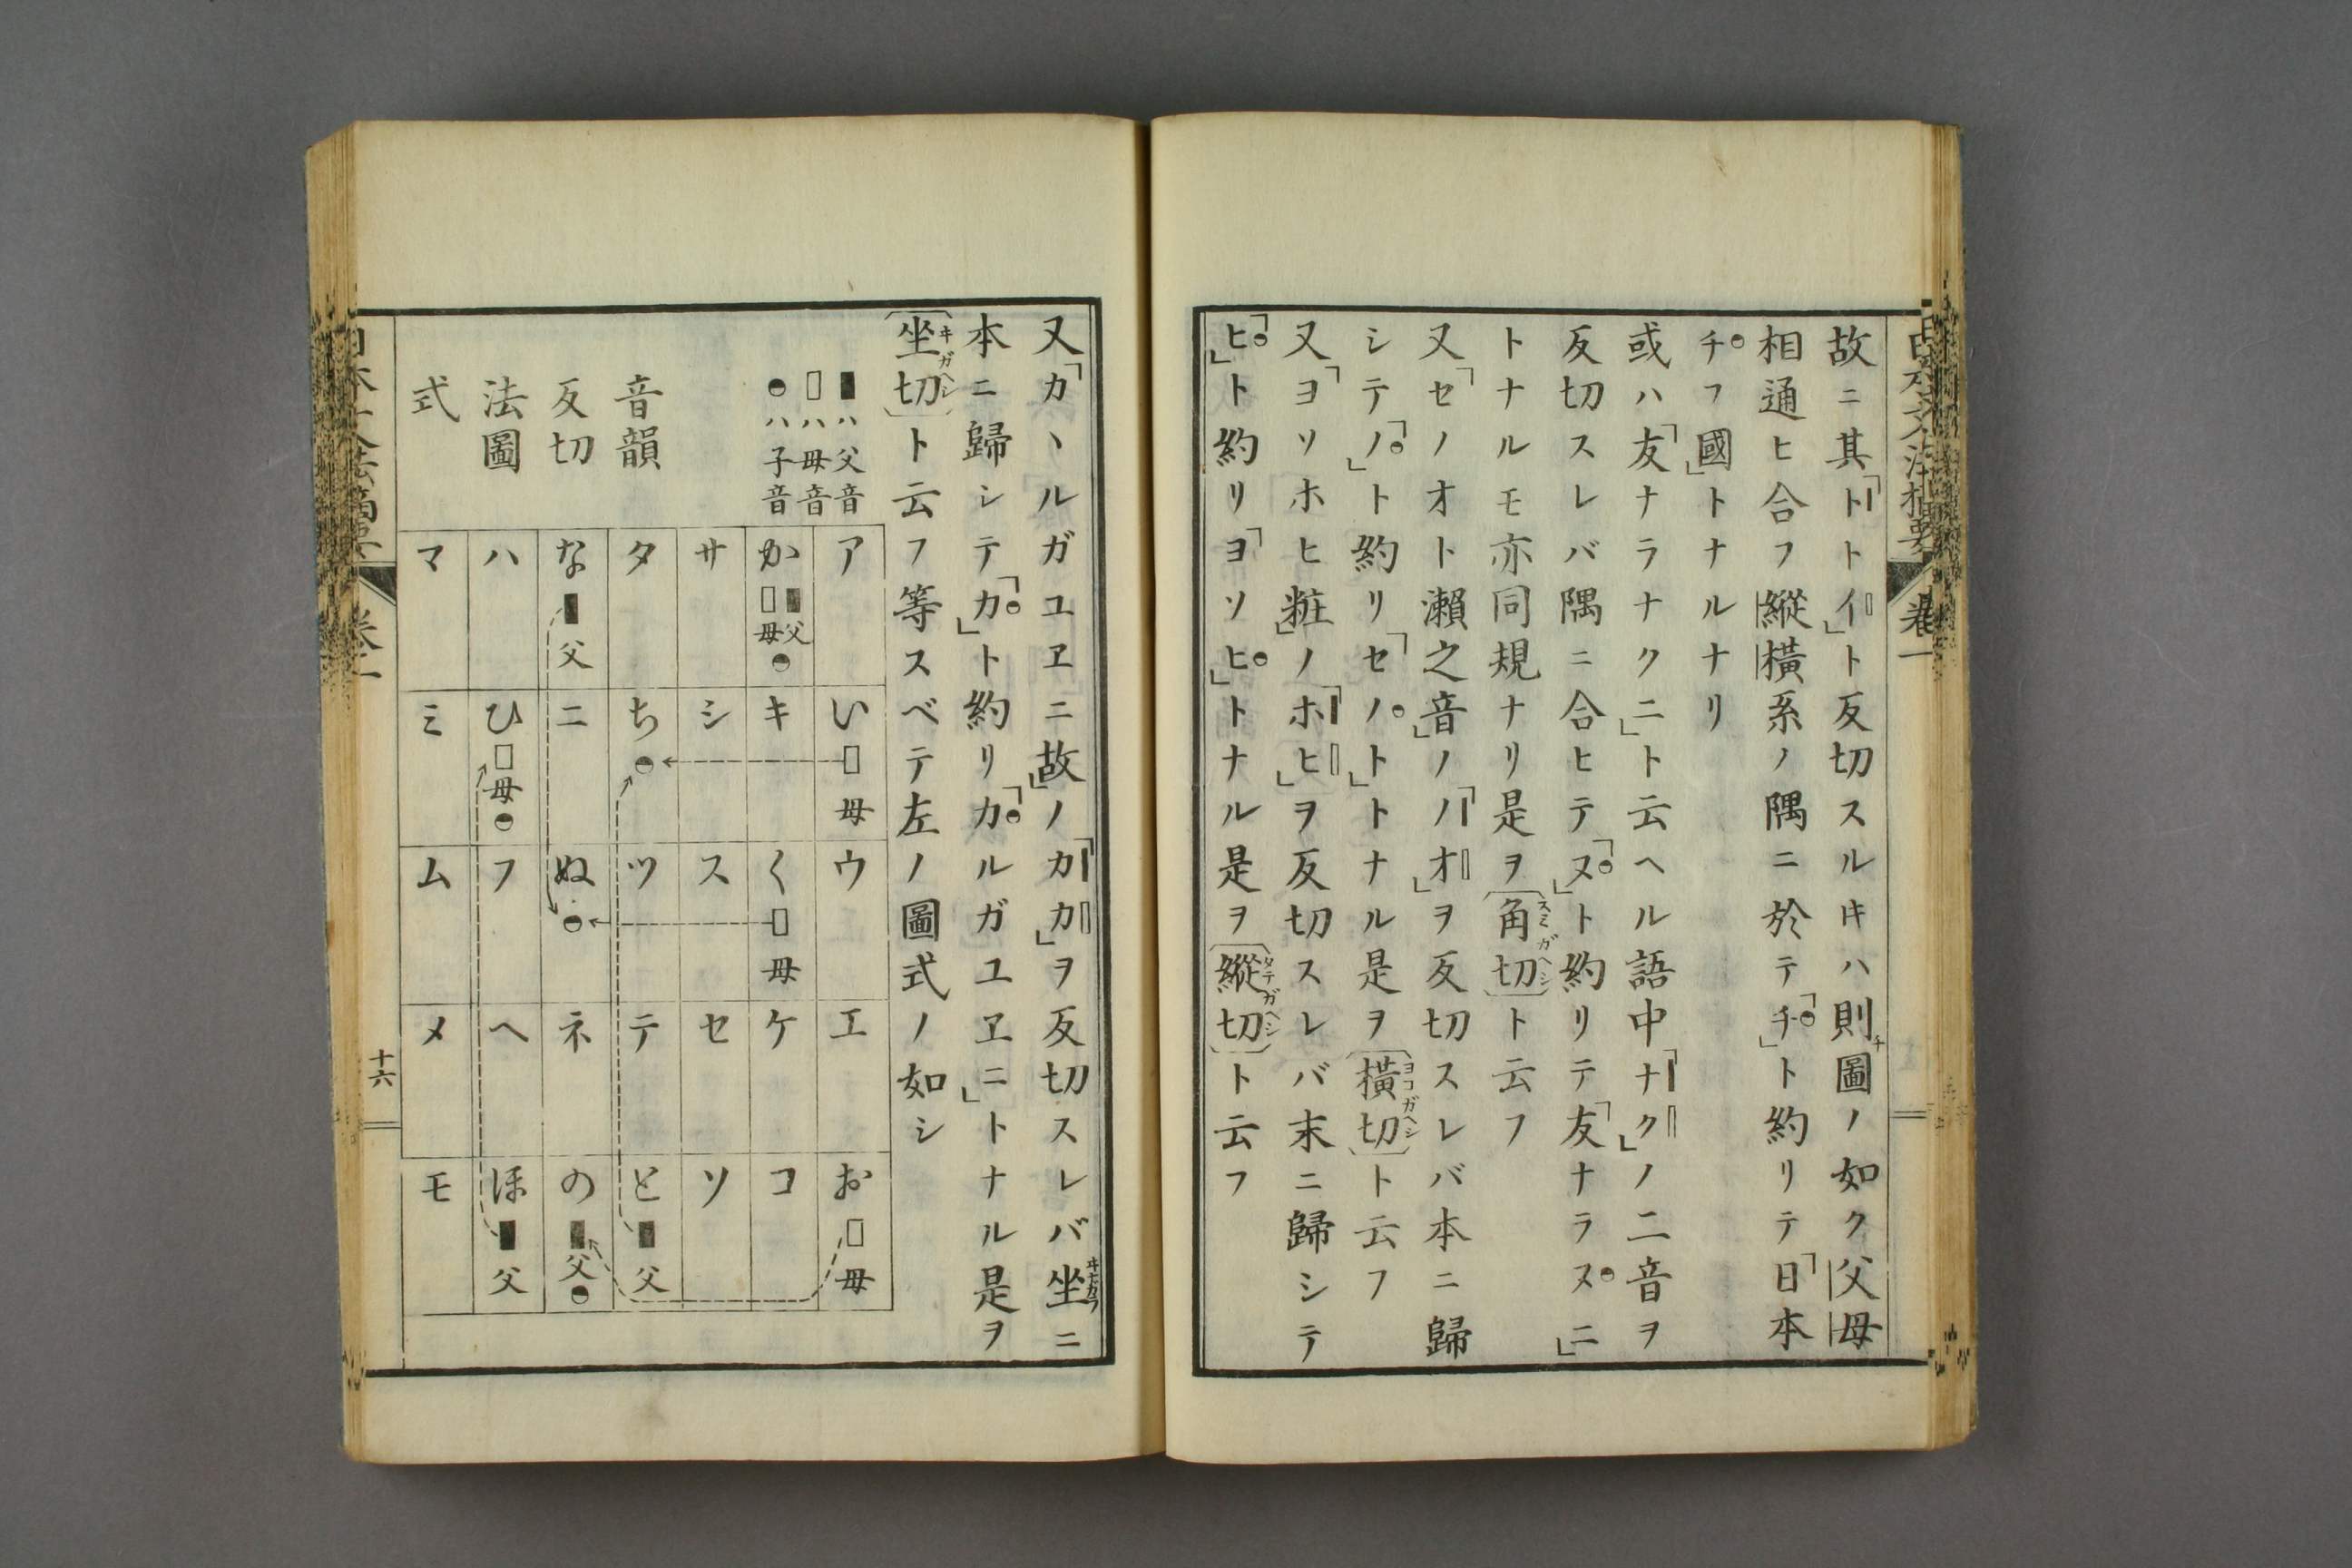 故ニ其「トトイ」ト反切スルキハ則チ圖ノ如ク父母
相通ヒ合フ縱橫系ノ隅ニ於テ「チ」ト約リテ「日本
チフ國」トナルナリ
或ハ「友ナラナクニ」ト云ヘル語中「ナク」ノ二音ヲ
反切スレバ隅ニ合ヒテ「ヌ」ト約リテ「友ナラヌニ」
トナルモ亦同規ナリ是ヲ〔角切〕スミガヘシト云フ
又「セノオト瀨之音」ノ「ノオ」ヲ反切スレバ本ニ歸
シテ「ノ」ト約リ「セノト」トナル是ヲ〔橫切〕ヨコガヘシト云フ
又「ヨソホヒ粧」ノ「ホヒ」ヲ反切スレバ末ニ歸シテ
「ヒ」ト約リ「ヨソヒ」トナル是ヲ〔縱切〕タテガヘシト云フ
又「カヽルガユヱニ故」ノ「カカ」ヲ反切スレバ坐ニ
本ニ歸シテ「カ」ト約リ「カルガユヱニ」トナル是ヲ
〔坐切〕ヰガヘシト云フ等スベテ左ノ圖式ノ如シ
▮ハ父音
▯ハ母音
◓ハ子音
音韻
反切
法圖
式
ア い▯母 ウ エ お▯母
か▮父▯母◓ キ く▯母 ケ コ
サ シ ス セ ソ
タ ち◓ ツ テ と▮父
な▮父 ニ ぬ◓ ネ の▮父◓
ハ ひ▯母◓ フ ヘ ほ▮父
マ ミ ム メ モ
卷一
十六